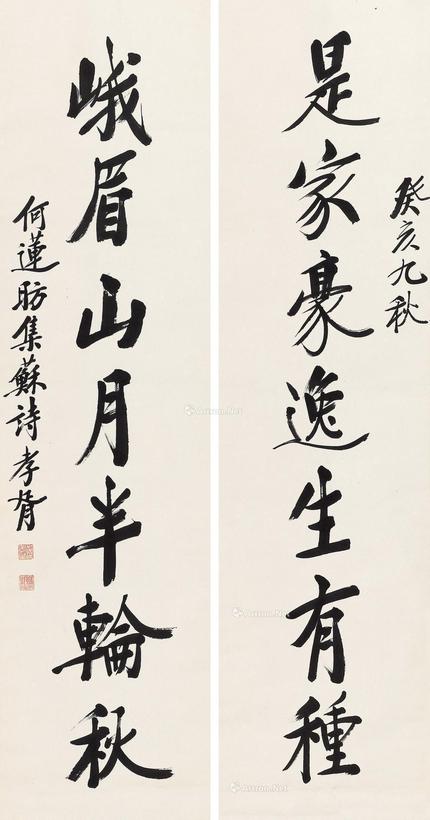 癸亥九秋
是家豪逸生有種
峨眉山月半輪秋
何蓮昉集蘇詩孝胥
Artron.Net
Artron.Net
Artron.Net